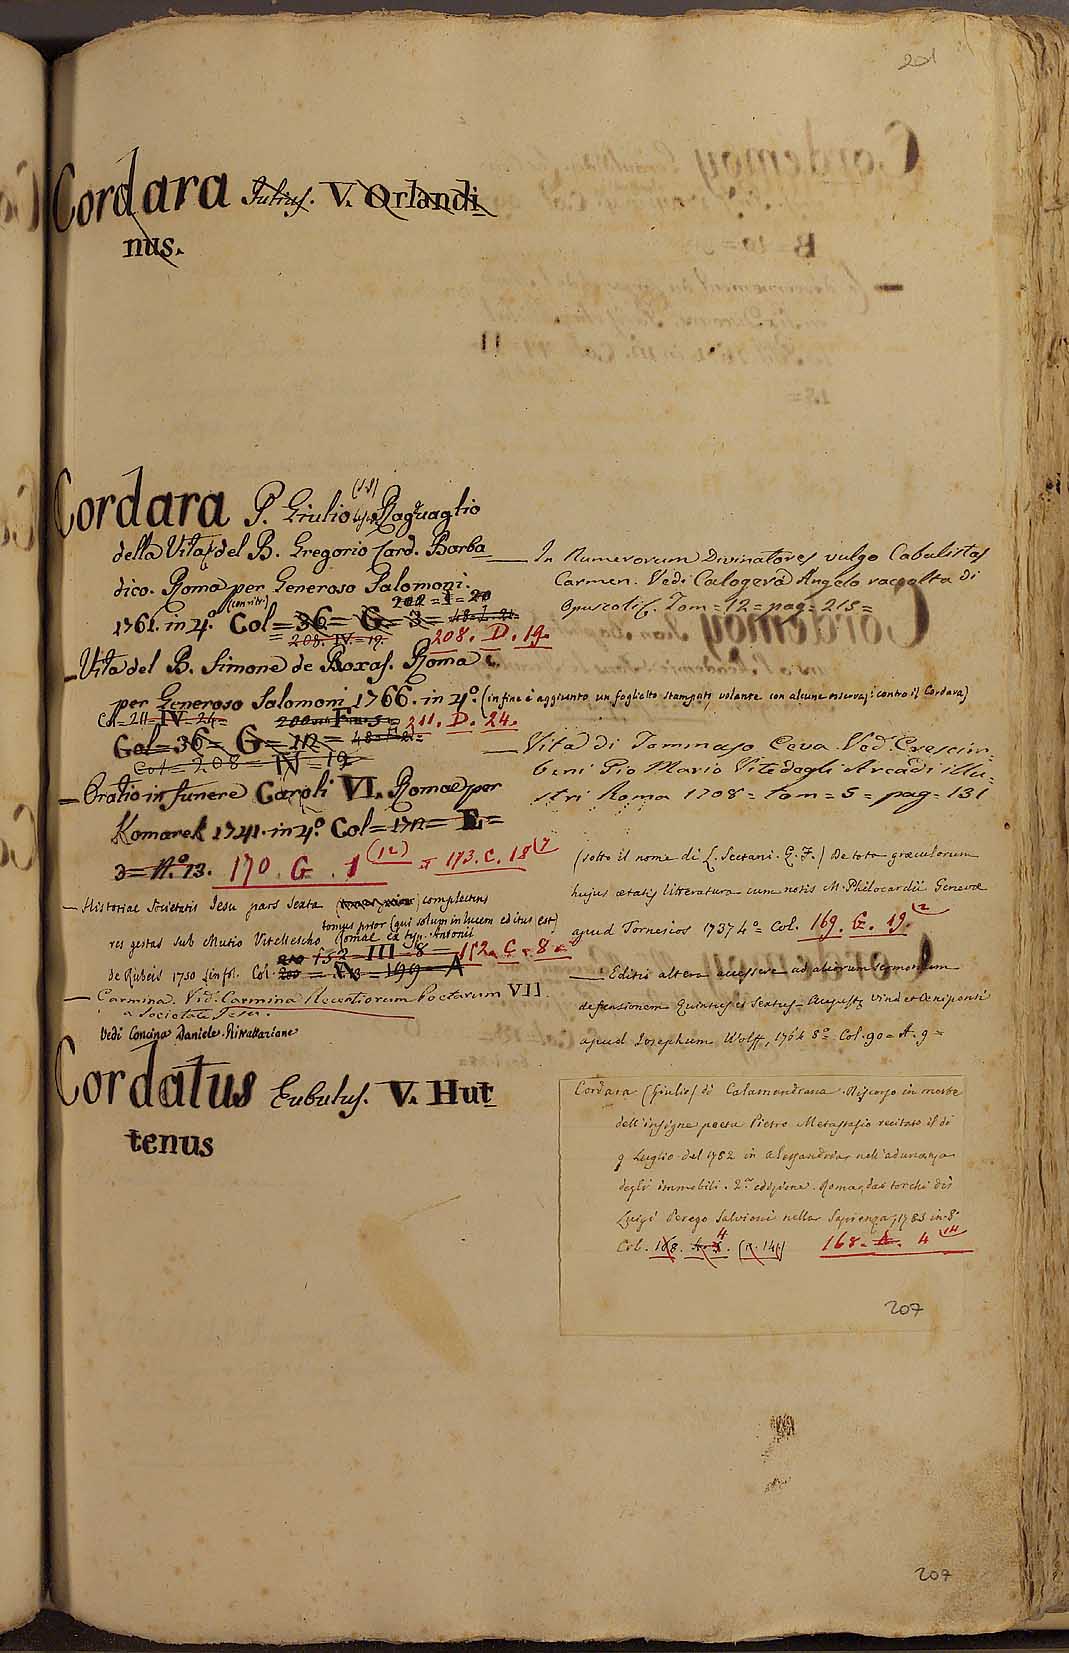 201
Cordara Julius. V. Orlandi
nus.
Cordara P. Giulio (d. S) Raguaglio
della Vita del B. Gregorio Card. Barba
dico. Roma per Generoso Salomoni.
1761. in 4.º (con ritr.) Col = 36 = G = 3 = 208 = I = 20
208. IV = 19. 208. D. 19.
Vita del B. Simone de Roxas. Roma
per Generoso Salomoni 1766. in 4.º (in fine è aggiunto un foglietto stampato volante con alcune osservaz.i contro il Cordara)
Col = 211 = IV = 24 = 211. D. 24.
Col = 36 = G = 12 =
Col = 208 = IV = 19
— Oratio in funere Caroli VI. Romae per
Komarek 1741. in 4.º Col = 172 = E =
3 = N.º 13. 170. G. 1 (12) = 173. C. 18 7
— Historiae Societatis Jesu pars Sexta complectens
tomus prior (qui solum in lucem editus est)
res gestas sub Mutio Vitellescho Romae ex typ. Antonii
de Rubeis 1750 in fol. Col. 152 = III = 8 = 152. C. 8
= 199 = A
— Carmina. Vid. Carmina Recentiorum Poetarum VII.
a Societate Jesu.
Vedi Concina Daniele. Ritrattazione
Cordatus Eubulus. V. Hut
tenus
— In Numerorum Divinatores vulgo Cabalistas
Carmen. Vedi Calogerà Angelo raccolta di
Opuscoli &. Tom = 12 = pag = 215 =
— Vita di Tommaso Ceva. Ved. Crescim-
beni Gio Mario Vite degli Arcadi illu-
stri Roma 1708 = tom = 5 = pag = 131
(sotto il nome di L. Sectani. Q. F.) De tota graeculorum
hujus aetatis litteratura cum notis M. Philocardii Genevae
apud Tornesios 1737 4º Col. 169. G. 19. 2
— Editio altera accessere ad aliorum sermonum
defensionem Quintus et Sextus. Augustae Vindel et Oeniponti
apud Josephum Wolff, 1764 8º Col. 90 = A. 9 =
Cordara (Giulio) di Calamandrana. Discorso in morte
dell'insigne poeta Pietro Metastasio recitato il dì
9 Luglio del 1782 in Alessandria nell'adunanza
degli immobili. 2.ª edizione. Roma, dai torchi di
Luigi Perego Salvioni nella Sapienza, 1783 in 8º
Col. 168. A. 4. (n. 14.) 168. A. 4 14
207
207